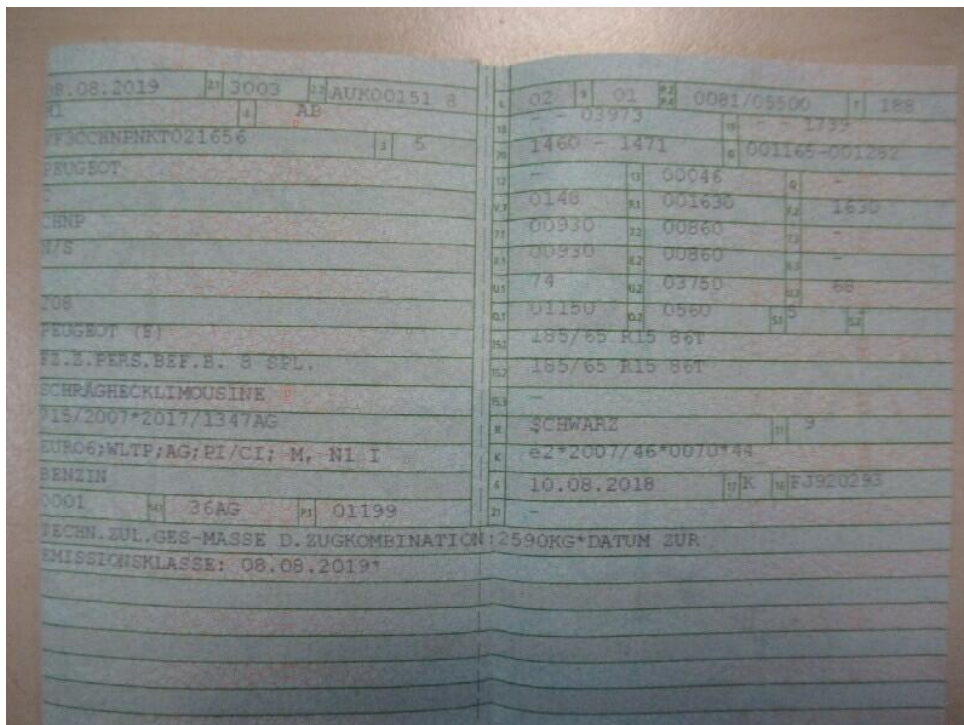 08.08.2019 2.1 3003 2.2 AUK00151 8
M1 4 AB
VF3CCHNPNKT021656 3 5
PEUGEOT
CHNP
208
PEUGEOT (F)
FZ.Z.PERS.BEF.B. 8 SPL.
SCHRÄGHECKLIMOUSINE
715/2007*2017/1347AG
EURO6;WLTP;AG;PI/CI; M, N1 I
BENZIN
0001 14.1 36AG P.1 01199
L 02 9 01 P.2 P.4 0081/05500 T 188
18 - - 03973 19 - - 1739
20 1460 - 1471 G 001165-001262
12 - 13 00046 Q -
V.7 0148 F.1 001630 F.2 1630
7.1 00930 7.2 00860 7.3 -
8.1 00930 8.2 00860 8.3 -
U.1 74 U.2 03750 U.3 68
O.1 01150 O.2 0560 S.1 5 S.2
15.1 185/65 R15 86T
15.2 185/65 R15 86T
15.3 -
R SCHWARZ 11 9
K e2*2007/46*0070*44
6 10.08.2018 17 K 16 FJ920293
21 -
TECHN.ZUL.GES-MASSE D.ZUGKOMBINATION:2590KG*DATUM ZUR
EMISSIONSKLASSE: 08.08.2019*